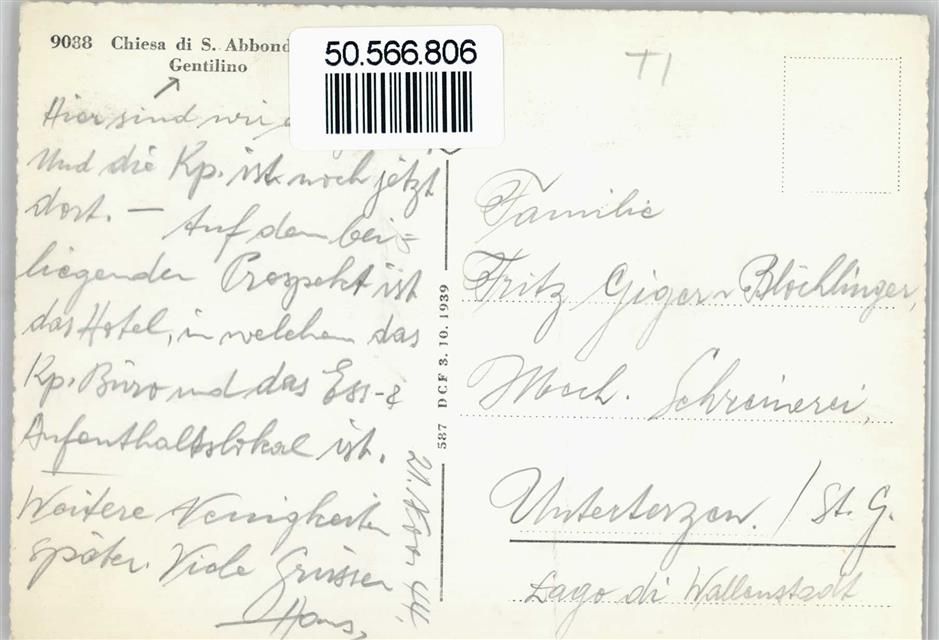 9038 Chiesa di S. Abbond
Gentilino
50.566.806
Hier sind wir
Und die Kp. ist noch jetzt
dort. — Auf dem bei=
liegenden Prospekt ist
das Hotel, in welchem das
Kp. Büro und das Ess- &
Aufenthaltslokal ist.
Weitere Neuigkeiten
später. Viele Grüsse
Hans,
21. Nov 44.
587 DCF 3. 10. 1939
TI
Familie
Fritz Giger-Blöchlinger,
Mech. Schreinerei,
Unterterzen. / St. G.
Lago di Wallenstadt